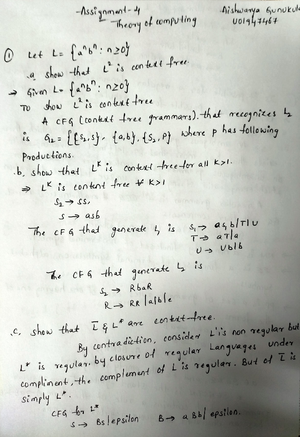 Assignment-4
Theory of computing
Aishwarya Gunukula
U01947467
① Let L = {aⁿbⁿ : n≥0}
.a. show that L² is context free.
→ Given L = {aⁿbⁿ : n≥0}
To show L² is context free
A CFG (context free grammars) that recognizes L₂
is G₁₂ = {{S₂,S}, {a,b}, {S₂,P} where P has following
Productions.
.b. show that Lᴷ is context free for all K>1.
⇒ Lᴷ is content free ∀ K>1
S₂ → SS,
S → asb
The CFG that generate L, is S₁ → a S, b|T|U
T → aT|a
U → Ub|b
The CFG that generate L₂ is
S₂ → RbaR
R → RR|a|b|ε
.c, show that L̅ & L* are context-free.
By contradiction, consider L is non regular but
L* is regular. by closure of regular Languages under
compliment, the complement of L is regular. But of L̅ is
simply L*.
CFG for L*
S → Bs|epsilon B → aBb|epsilon.